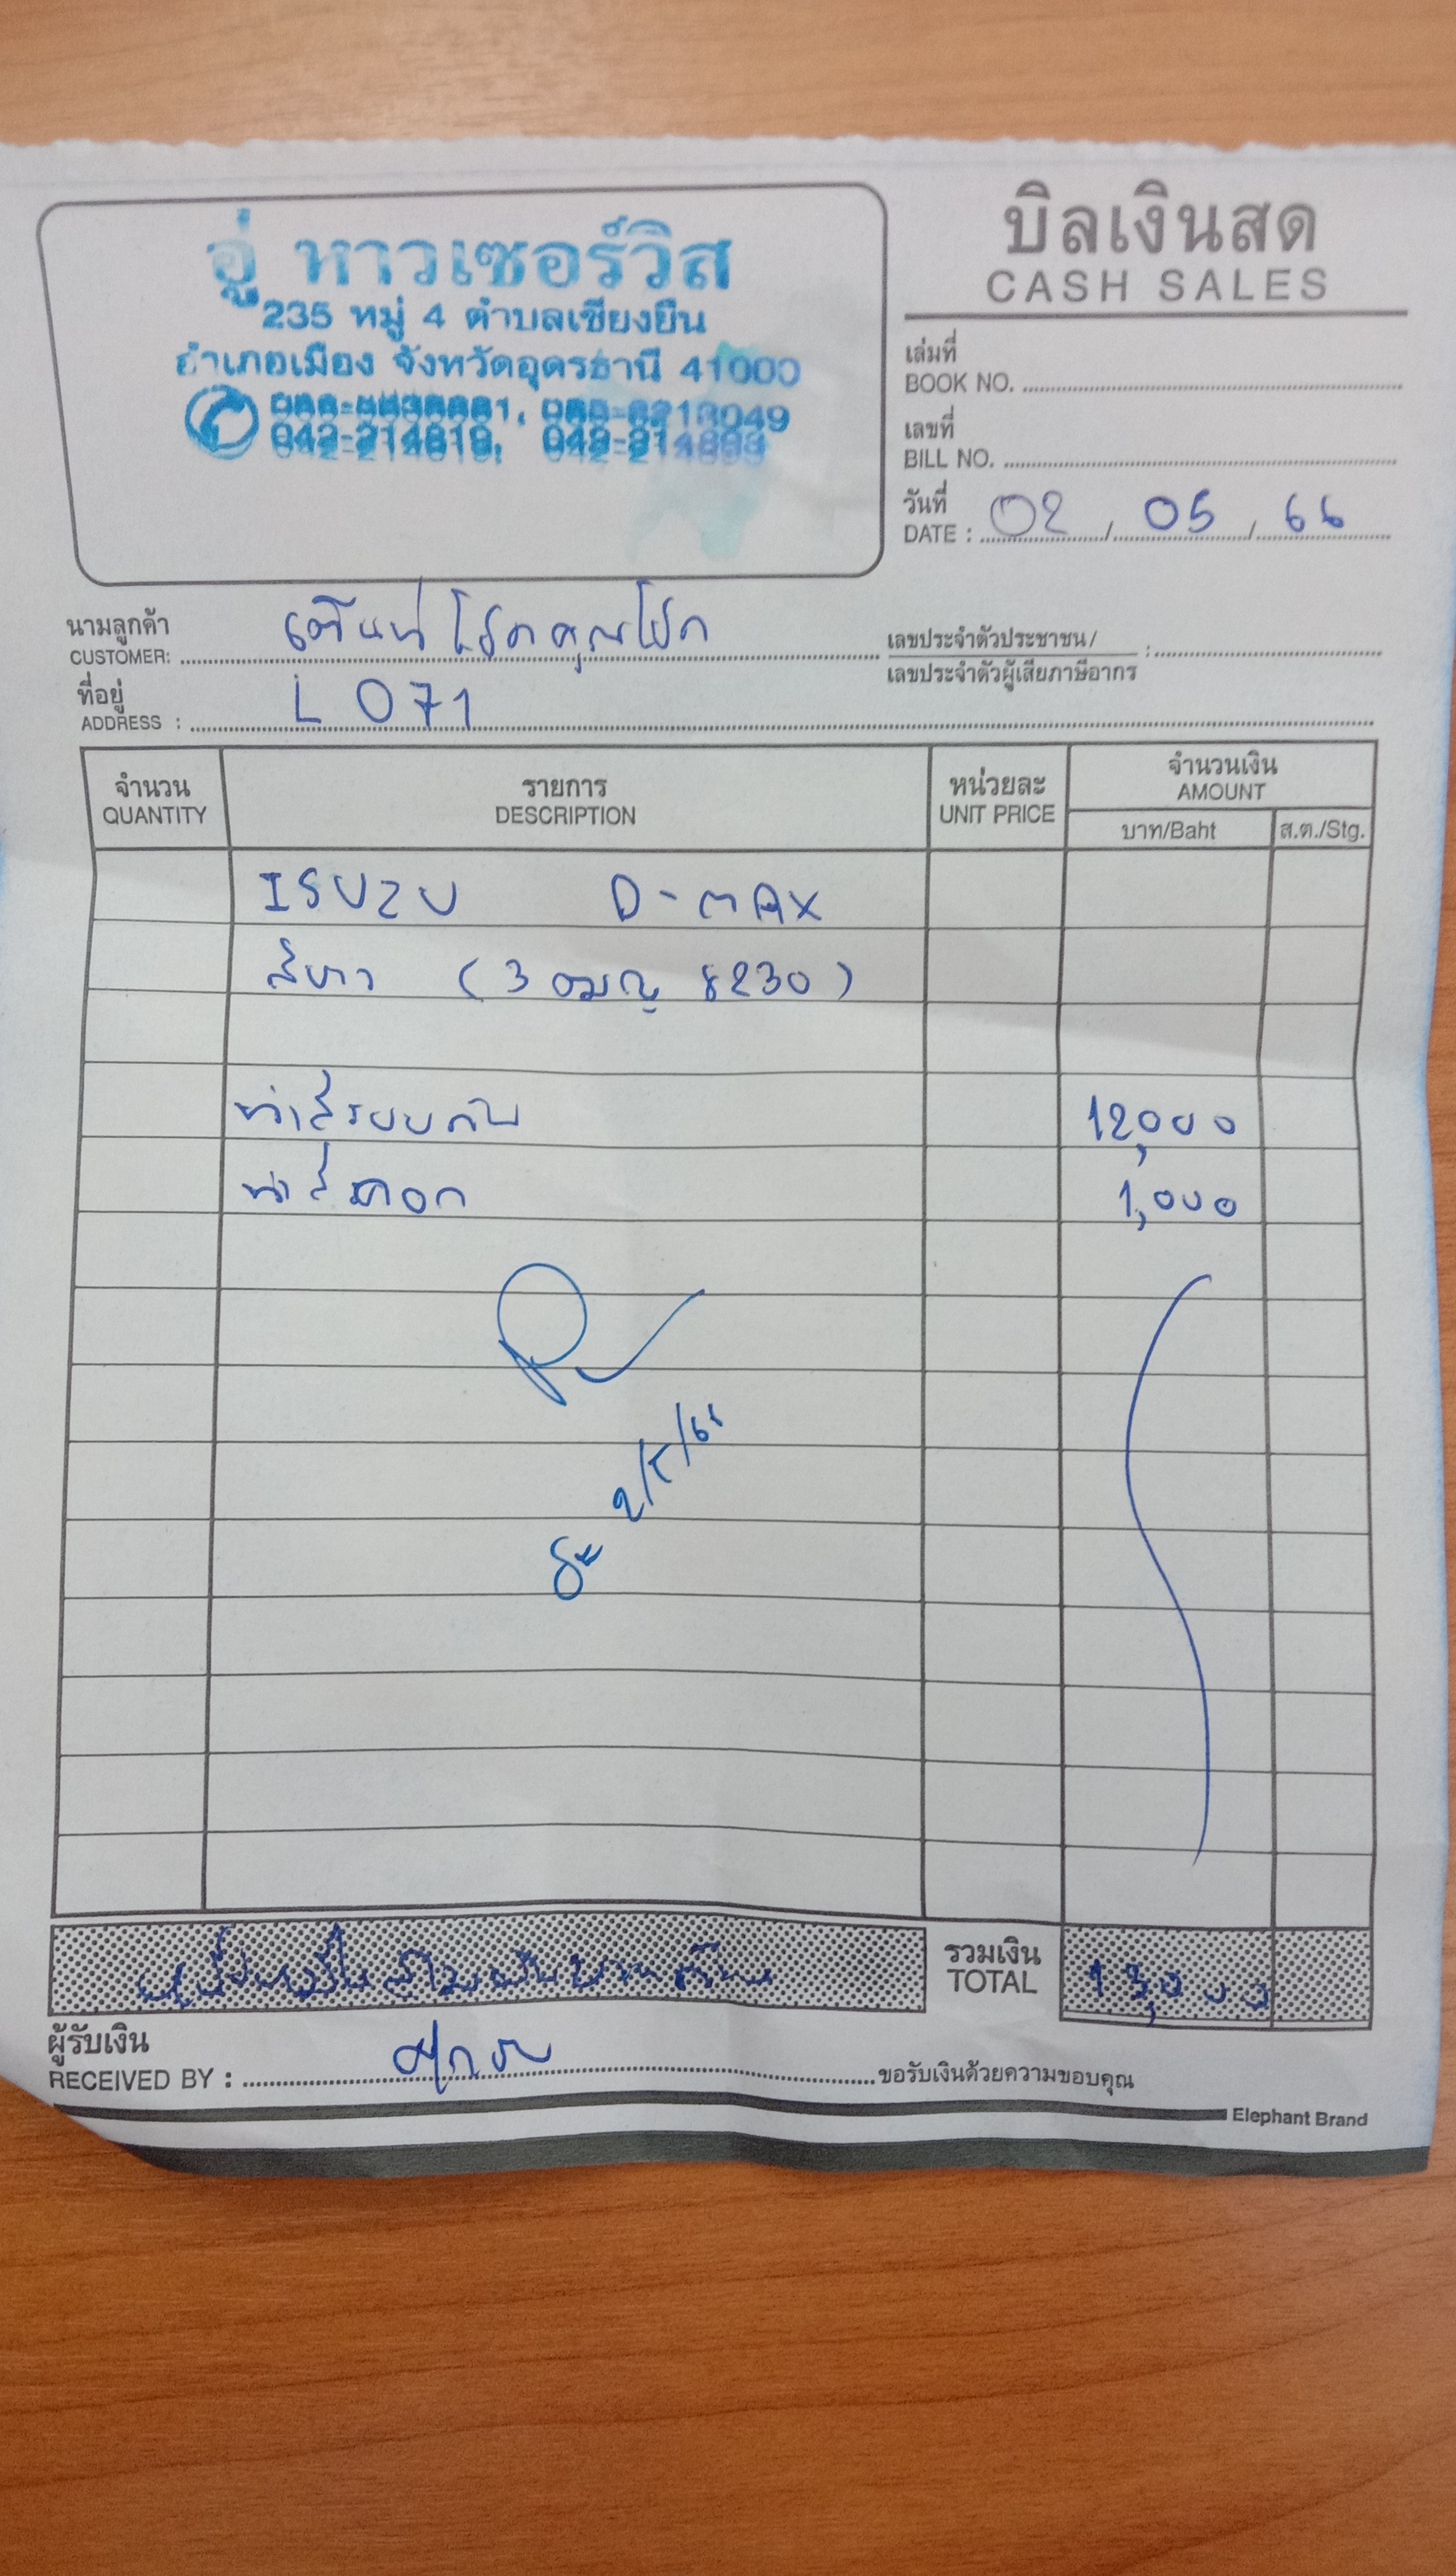 อู่ หาวเซอร์วิส
235 หมู่ 4 ตำบลเชียงยืน
อำเภอเมือง จังหวัดอุดรธานี 41000
บิลเงินสด
CASH SALES
เล่มที่
BOOK NO.
เลขที่
BILL NO.
วันที่
DATE : 02 / 05 / 66
นามลูกค้า
CUSTOMER: เต็นท์โชคคูณโชค
เลขประจำตัวประชาชน /
เลขประจำตัวผู้เสียภาษีอากร :
ที่อยู่
ADDRESS : L 071
จำนวน
QUANTITY
รายการ
DESCRIPTION
หน่วยละ
UNIT PRICE
จำนวนเงิน
AMOUNT
บาท/Baht
ส.ต./Stg.
ISUZU D-MAX
สีขาว (3 ฒญ 8230)
ทำสีรอบคัน 12,000
1,000
2/5/66
หนึ่งหมื่นสามพันบาทถ้วน
รวมเงิน
TOTAL 13,000
ผู้รับเงิน
RECEIVED BY :
ขอรับเงินด้วยความขอบคุณ
Elephant Brand